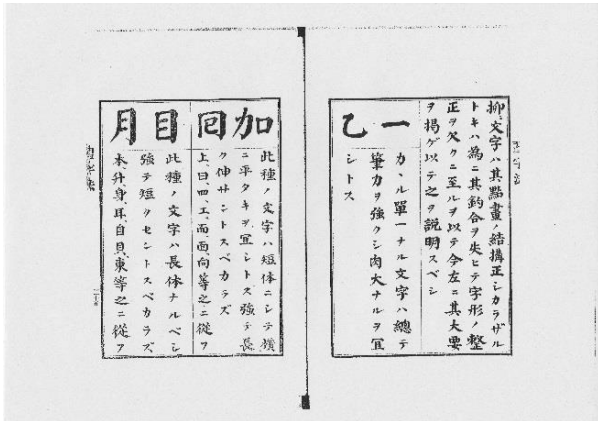 抑、文字ハ其點畫ノ結搆正シカラザル
トキハ為ニ其釣合ヲ失ヒテ字形ノ整
正ヲ欠クニ至ルヲ以テ今左ニ其大要
ヲ揭ゲ以テ之ヲ説明スベシ
一乙
カヽル單一ナル文字ハ總テ
筆力ヲ強クシ肉大ナルヲ冝
シトス
加回目月
此種ノ文字ハ短体ニシテ橫
ニ平タキヲ冝シトス強テ長
ク伸サントスベカラズ
上、曰、四、工、而、面、向等之ニ從フ
此種ノ文字ハ長体ナルベシ
強テ短クセントスベカラズ
本、升、身、耳、自、貝、東等之ニ從フ